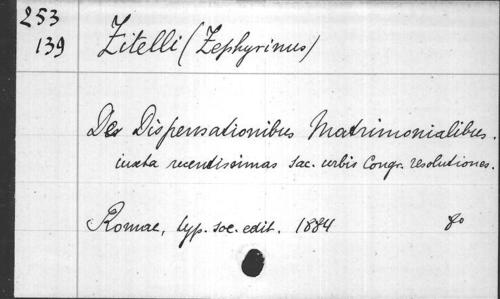 253
139
Zitelli (Zephyrinus)
De Dispensationibus Matrimonialibus.
iuxta recentissimas sac. urbis Congr. resolutiones.
Romae, typ. soc. edit. 1884 8o